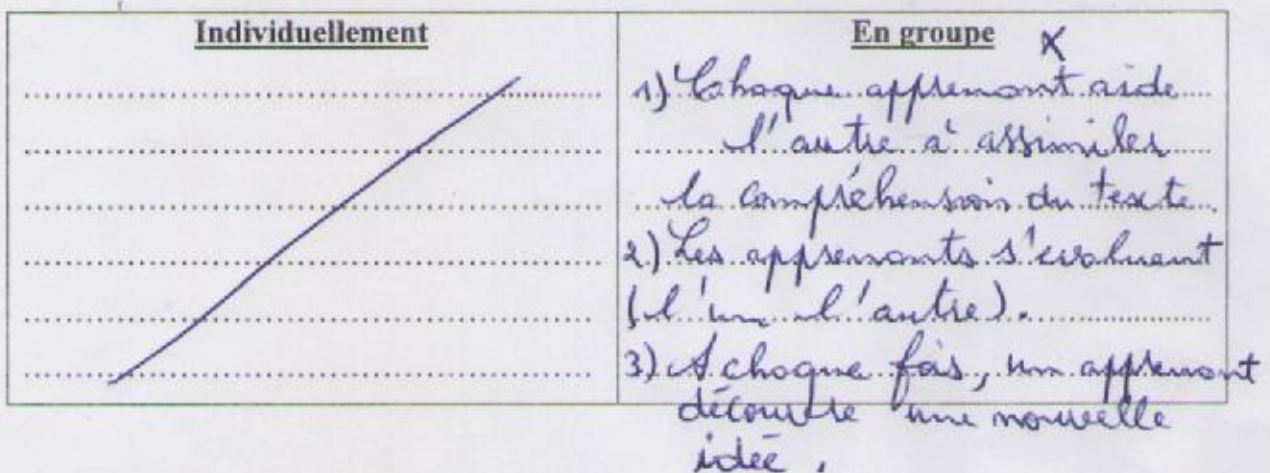 Individuellement
En groupe X
1) Chaque apprenant aide
l'autre à assimiler
la compréhension du texte.
2) Les apprenants s'evaluent
(l'un l'autre).
3) A chaque fois, un apprenant
découvre une nouvelle
idée.